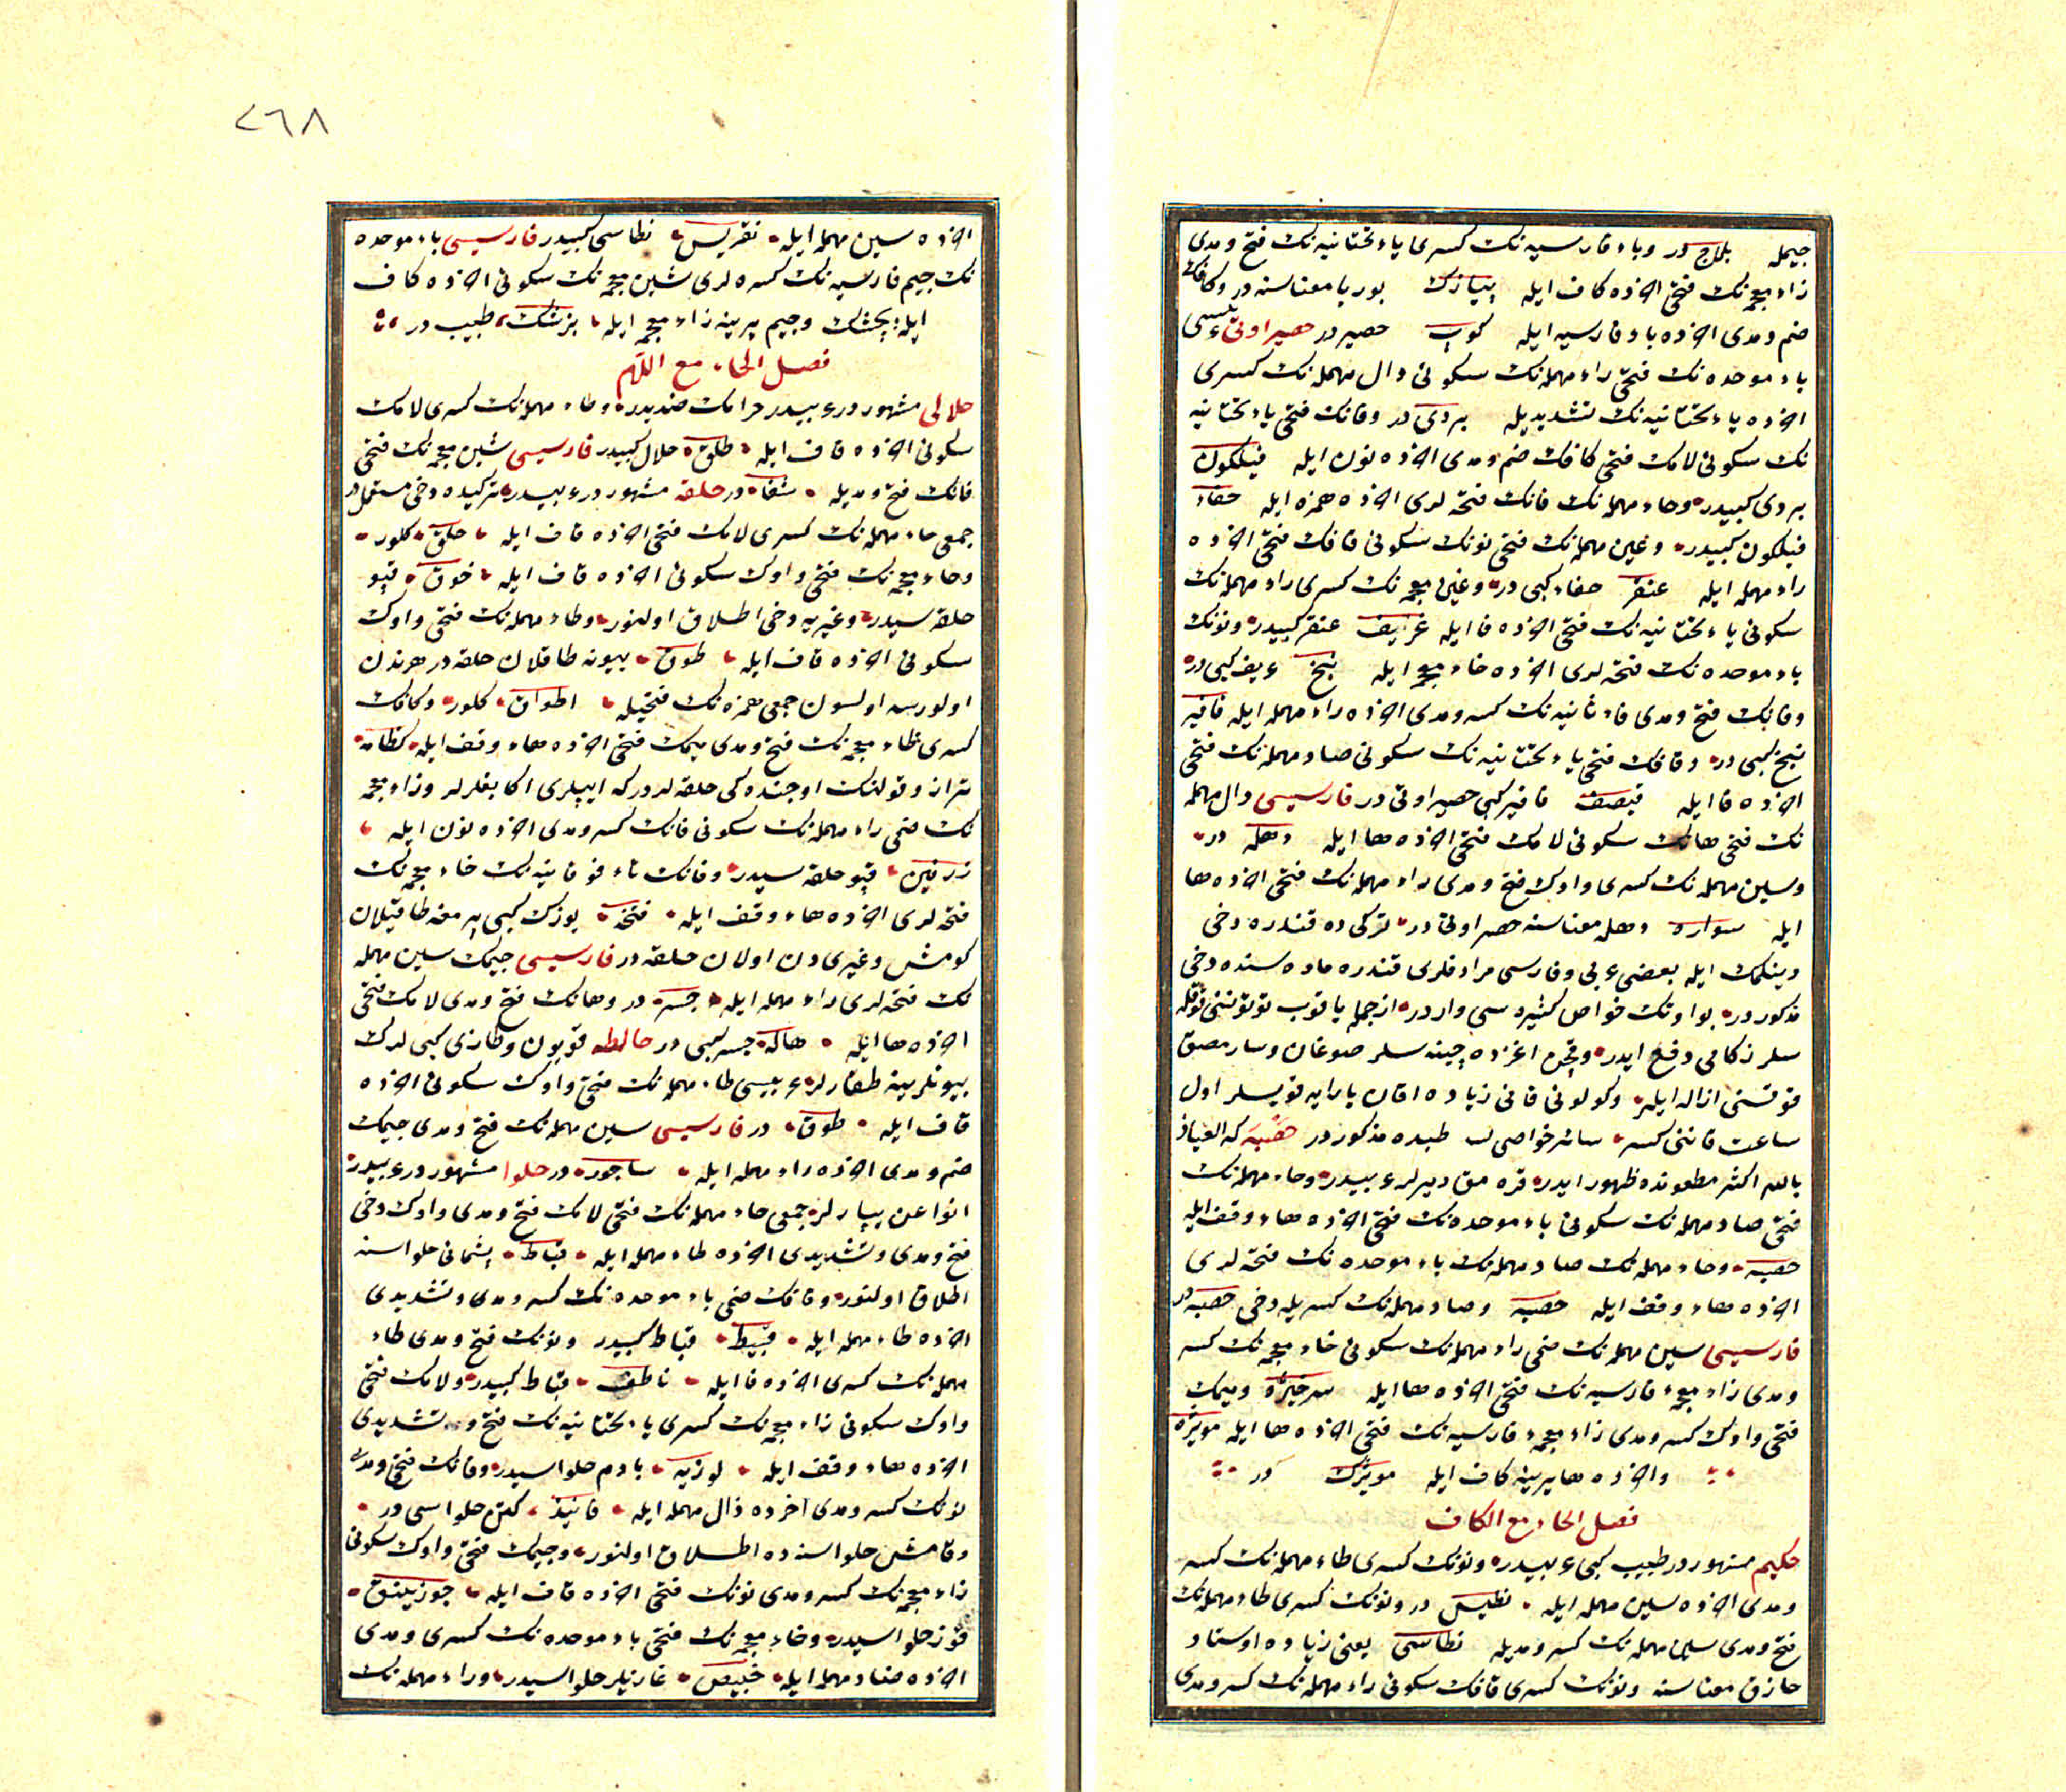 جیمله بلاج در وباء فارسیه نک کسری یاء تحتانیه نک فتح و مدی
زاء معجمه نک فتحی اخرده کاف ایله پیازک بوریا معناسنه در وکافک
ضم و مدی اخرده باء فارسیه ایله کوپ حصیر در حصیر اوتی عربیسی
باء موحده نک فتحی راء مهمله نک سکونی دال مهمله نک کسری
اخرده یاء تحتانیه نک تشدیدیله بردی در وفانک فتحی یاء تحتانیه
نک سکونی لامک فتحی کافک ضم و مدی اخرده نون ایله فیلکون
بردی کبیدر وحاء مهمله نک فانک فتحه لری اخرده همزه ایله حفاء
فیلکون کبیدر وعین مهمله نک فتحی نونک سکونی قافک فتحی اخرده
راء مهمله ایله عنقر حفاء کبی در وغین معجمه نک کسری راء مهمله نک
سکونی یاء تحتانیه نک فتحی اخرده فا ایله غریف عنقر کبیدر ونونک
باء موحده نک فتحه لری اخرده خاء معجمه ایله نبخ غریف کبی در
وفانک فتح و مدی فاء ثانیه نک کسر و مدی اخرده راء مهمله ایله فافیر
نبخ کبی در وقافک فتحی یاء تحتانیه نک سکونی صاد مهمله نک فتحی
اخرده فا ایله قیصف فافیر کبی حصیر اوتی در فارسیسی دال مهمله
نک فتحی هانک سکونی لامک فتحی اخرده ها ایله دهله در
وسین مهمله نک کسری واوک فتح و مدی راء مهمله نک فتحی اخرده ها
ایله سواره دهله معناسنه حصر اوتی در ترکی ده قندره دخی
دینلمک ایله بعضی عربی وفارسی مرادفلری قندره ماده سنده دخی
مذکور در بو اوتک خواص کثیره سی وار در ازجمله یاقوب توتوننی قوقله
سلر زکامی دفع ایدر وقچن اغزده چینه سلر صوغان وسارمصق
قوقسنی ازاله ایلر وکولونی قانی زیاده اقان یارایه قویسلر اول
ساعت قاننی کسر سائر خواصی کتب طبده مذکور در حصبه که العیاذ
بالله اکثر مطعونده ظهور ایدر قره مق دیرلر عربیدر وحاء مهمله نک
فتحی صاد مهمله نک سکونی باء موحده نک فتحی اخرده هاء وقف ایله
حصبه وحاء مهمله نک صاد مهمله نک باء موحده نک فتحه لری
اخرده هاء وقف ایله حصبه وصاد مهمله نک کسریله دخی حصبه در
فارسیسی سین مهمله نک ضمی راء مهمله نک سکونی خاء معجمه نک کسر
و مدی زاء معجمه فارسیه نک فتحی اخرده ها ایله سرخیژه ومیمک
فتحی واوک کسر و مدی زاء معجمه فارسیه نک فتحی اخرده ها ایله مویژه
واخرده ها یرینه کاف ایله مویژک در
فصل الحاء مع الکاف
حکیم مشهور در طبیب کبی عربیدر ونونک کسری طاء مهمله نک کسر
و مدی اخرده سین مهمله ایله نطیس در ونونک کسری طاء مهمله نک
فتح و مدی سین مهمله نک کسر و مدیله نطاسی یعنی زیاده اوستاد
حاذق معناسنه ونونک کسری قافک سکونی راء مهمله نک کسر و مدی
٢٦٨
اخرده سین مهمله ایله نقریس نطاسی کبیدر فارسیسی باء موحده
نک جیم فارسیه نک کسره لری شین معجمه نک سکونی اخرده کاف
ایله بچشک وجیم یرینه زاء معجمه ایله بزشک طبیب در
فصل الحاء مع اللام
حلالی مشهور در عربیدر حرامک ضدیدر وطاء مهمله نک کسری لامک
سکونی اخرده قاف ایله طلق حلال کبیدر فارسیسی شین معجمه نک فتحی
فانک فتح و مدیله شفاه در حلقه مشهور در عربیدر ترکیده دخی مستعمل در
جمعی حاء مهمله نک کسری لامک فتحی اخرده قاف ایله حلق کلور
وخاء معجمه نک فتحی واوک سکونی اخرده قاف ایله خوق قپو
حلقه سیدر وغیریه دخی اطلاق اولنور وطاء مهمله نک فتحی واوک
سکونی اخرده قاف ایله طوق بیونه طاقلان حلقه در هر ندن
اولورسه اولسون جمعی همزه نک فتحیله اطواق کلور وکافک
کسری ظاء معجمه نک فتح و مدی میمک فتحی اخرده هاء وقف ایله کظامه
ترازو قولنک اوجنده کی حلقه لر در که ایپلری اکا بغلرلر وزاء معجمه
نک ضمی راء مهمله نک سکونی فانک کسر و مدی اخرده نون ایله
زرفین قپو حلقه سیدر وفانک تاء فوقانیه نک خاء معجمه نک
فتحه لری اخرده هاء وقف ایله فتخه یوزک کبی پرمغه طاقیلان
کومش وغیری دن اولان حلقه در فارسیسی جیمک سین مهمله
نک فتحه لری راء مهمله ایله جسر در وهانک فتح و مدی لامک فتحی
اخرده ها ایله هاله جسر کبی در حالطه قویون وطازی کبی لرک
بیونلرینه طقارلر عربیسی طاء مهمله نک فتحی واوک سکونی اخرده
قاف ایله طوق در فارسیسی سین مهمله نک فتح و مدی جیمک
ضم و مدی اخرده راء مهمله ایله ساجور در حلوا مشهور در عربیدر
انواعن یپارلر جمعی حاء مهمله نک فتحی لامک فتح و مدی واوک دخی
فتح و مدی وتشدیدی اخرده طاء مهمله ایله قباط پشمانی حلواسنه
اطلاق اولنور وقافک ضمی باء موحده نک کسر و مدی وتشدیدی
اخرده طاء مهمله ایله قبیط قباط کبیدر ونونک فتح و مدی طاء
مهمله نک کسری اخرده فا ایله ناطف قباط کبیدر ولامک فتحی
واوک سکونی زاء معجمه نک کسری یاء تحتانیه نک فتح و تشدیدی
اخرده هاء وقف ایله لوزیه بادم حلواسیدر وفانک فتح و مدی
نونک کسر و مدی آخرده ذال مهمله ایله فانیذ کتن حلواسی در
وقامش حلواسنه ده اطلاق اولنور وجیمک فتحی واوک سکونی
زاء معجمه نک کسر و مدی نونک فتحی اخرده قاف ایله جوزینق
قوز حلواسیدر وخاء معجمه نک فتحی باء موحده نک کسری و مدی
اخرده صاد مهمله ایله خبیص غازیلر حلواسیدر وراء مهمله نک